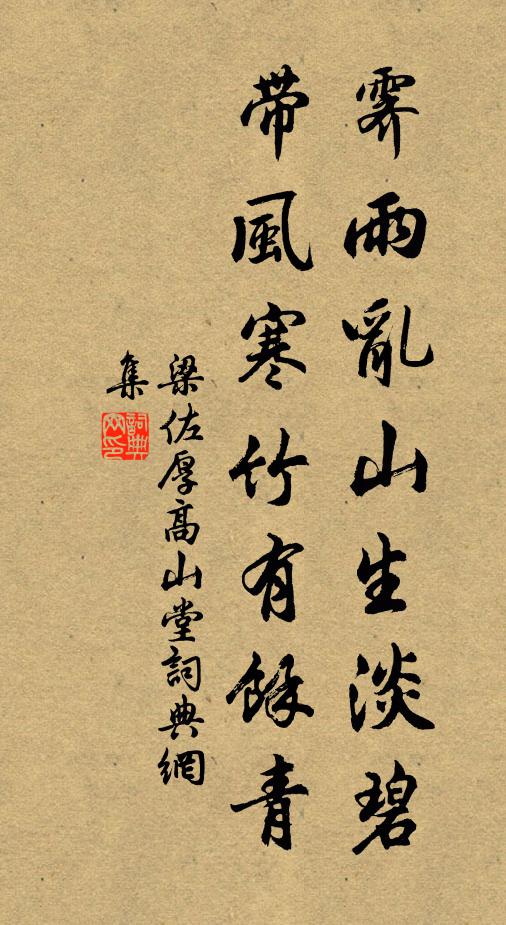 霽雨亂山生淡碧
帶風寒竹有餘青
梁佐厚高山堂詞典網
集
詞典網印